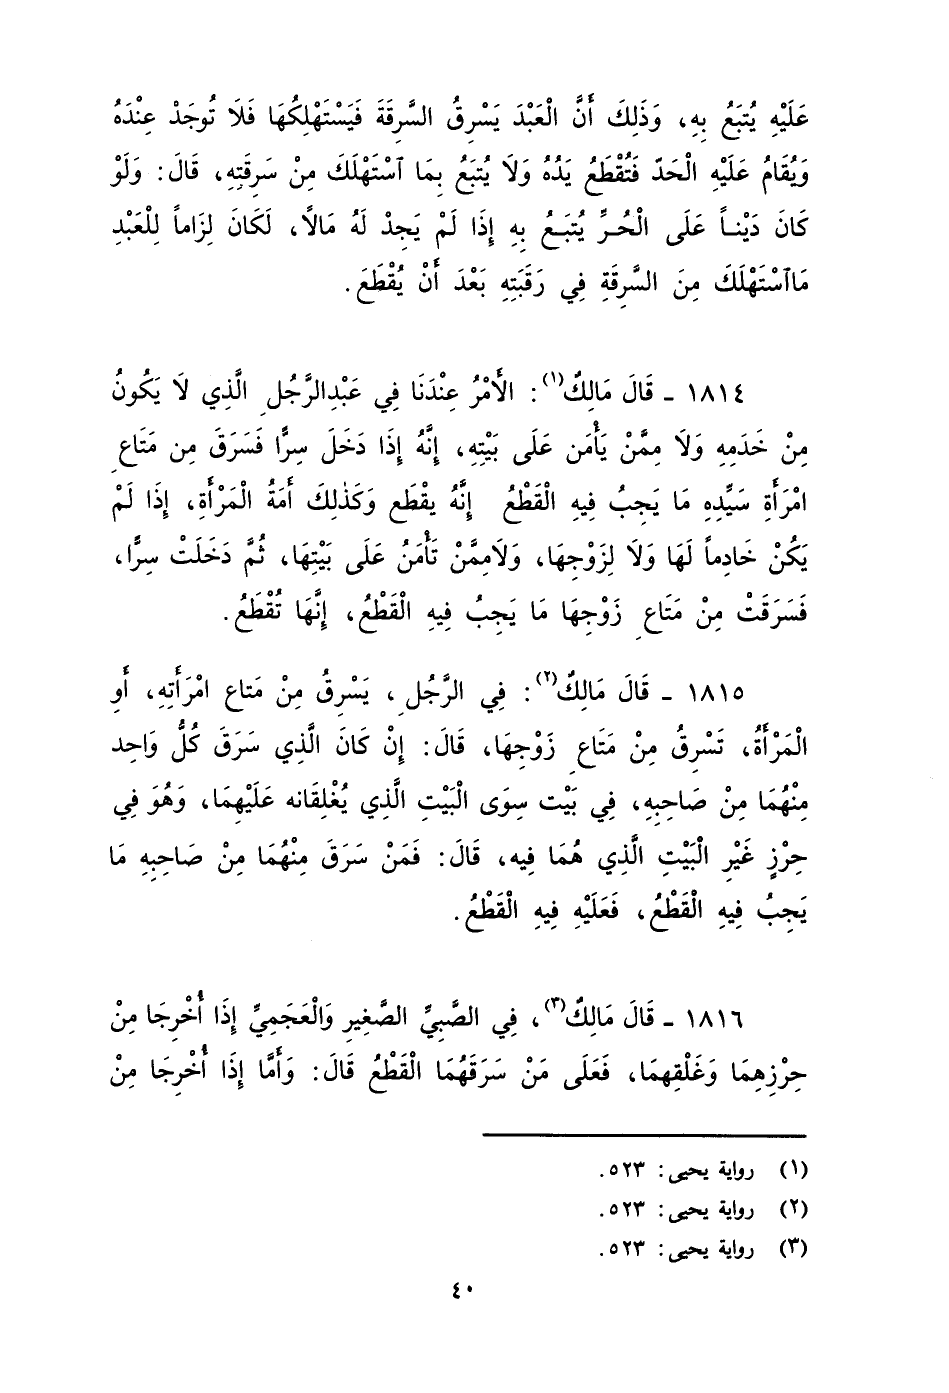 عَلَيْهِ يُتبَعُ بِهِ، وَذَلِكَ أَنَّ الْعَبْدَ يَسْرِقُ السَّرِقَةَ فَيَسْتَهْلِكُهَا فَلَا تُوجَدْ عِنْدَهُ
وَيُقَامُ عَلَيْهِ الْحَدّ فَتُقْطَعُ يَدُهُ وَلَا يُتبَعُ بِمَا ٱسْتَهْلَكَ مِنْ سَرِقتِهِ، قَالَ: وَلَوْ
كَانَ دَيْناً عَلَى الْحُرِّ يُتبَعُ بِهِ إِذَا لَمْ يَجِدْ لَهُ مَالًا، لَكَانَ لِزَاماً لِلْعَبْدِ
مَاٱسْتَهْلَكَ مِنَ السَّرِقَةِ فِي رَقَبَتِهِ بَعْدَ أَنْ يُقْطَعَ.
١٨١٤ - قَالَ مَالِكٌ(١): الأَمْرُ عِنْدَنَا فِي عَبْدِالرَّجُلِ الَّذِي لَا يَكُونُ
مِنْ خَدَمِهِ وَلَا مِمَّنْ يَأْمَن عَلَى بَيْتِهِ، إِنَّهُ إِذَا دَخَلَ سِرًّا فَسَرَقَ مِن مَتَاعِ
امْرَأَةِ سَيِّدِهِ مَا يَجِبُ فِيهِ الْقَطْعُ إِنَّهُ يقْطَع وَكَذٰلِكَ أمَةُ الْمَرْأَةِ، إِذَا لَمْ
يَكُنْ خَادِماً لَهَا وَلَا لِزَوْجِهَا، وَلَامِمَّنْ تَأْمَنُ عَلَى بَيْتِهَا، ثُمَّ دَخَلَتْ سِرًّا،
فَسَرَقَتْ مِنْ مَتَاعِ زَوْجِهَا مَا يَجِبُ فِيهِ الْقَطْعُ، إِنَّهَا تُقْطَعُ.
١٨١٥ - قَالَ مَالِكٌ(٢): فِي الرَّجُلِ، يَسْرِقُ مِنْ مَتاع امْرَأَتِهِ، أَوِ
الْمَرْأَةُ، تَسْرِقُ مِنْ مَتَاعِ زَوْجِهَا، قَالَ: إِنْ كَانَ الَّذِي سَرَقَ كُلُّ وَاحِد
مِنْهُمَا مِنْ صَاحِبِهِ، فِي بَيْت سِوَى الْبَيْتِ الَّذِي يُغْلِقَانه عَلَيْهِمَا، وَهُوَ فِي
حِرْزٍ غَيْرِ الْبَيْتِ الَّذِي هُمَا فِيه، قَالَ: فَمَنْ سَرَقَ مِنْهُمَا مِنْ صَاحِبِهِ مَا
يَجِبُ فِيهِ الْقَطْعُ، فَعَلَيْهِ فِيهِ الْقَطْعُ.
١٨١٦ - قَالَ مَالِكٌ(٣)، فِي الصَّبِيِّ الصَّغِيرِ وَالْعَجَمِيِّ إِذَا أُخْرِجَا مِنْ
حِرْزِهِمَا وَغَلْقِهِمَا، فَعَلَى مَنْ سَرَقَهُمَا الْقَطْعُ قَالَ: وَأَمَّا إِذَا أُخْرِجَا مِنْ
(١) رواية يحيى: ٥٢٣.
(٢) رواية يحيى: ٥٢٣.
(٣) رواية يحيى: ٥٢٣.
٤٠